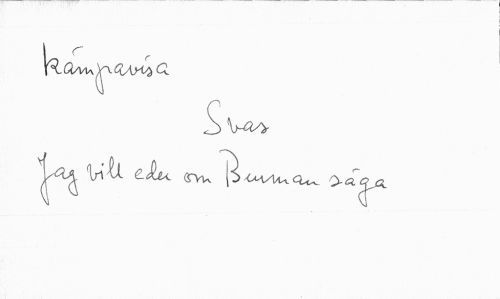 kämpavisa
Svar
Jag vill eder om Burman säga